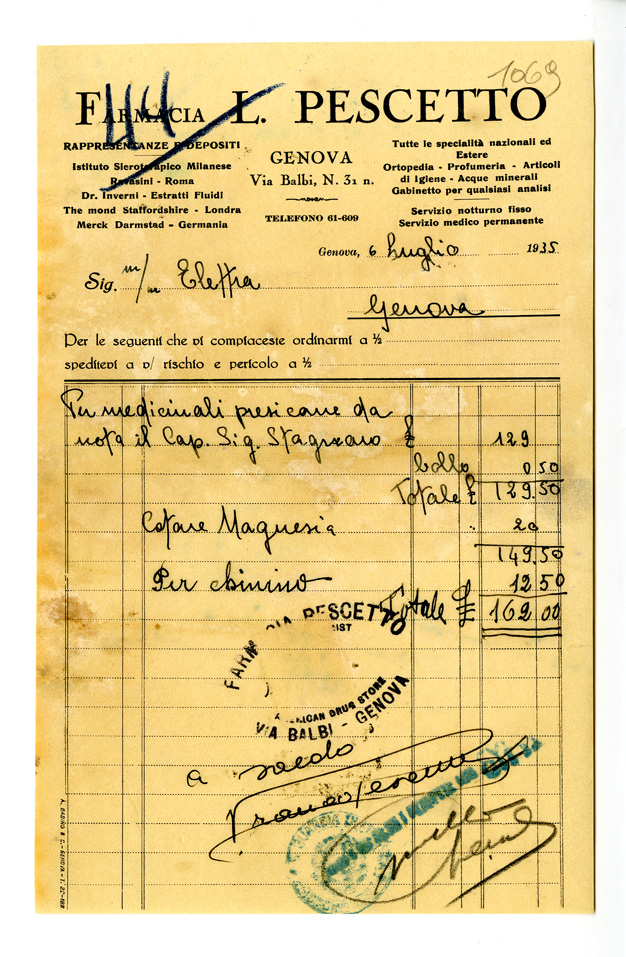 1069
44
FARMACIA L. PESCETTO
RAPPRESENTANZE E DEPOSITI
Istituto Sieroterapico Milanese
Ravasini - Roma
Dr. Inverni - Estratti Fluidi
The mond Staffordshire - Londra
Merck Darmstad - Germania
GENOVA
Via Balbi, N. 31 n.
TELEFONO 61-609
Tutte le specialità nazionali ed
Estere
Ortopedia - Profumeria - Articoli
di Igiene - Acque minerali
Gabinetto per qualsiasi analisi
Servizio notturno fisso
Servizio medico permanente
Genova, 6 Luglio 1935
Sig. m/m Elettra
Genova
Per le seguenti che vi compiaceste ordinarmi a ½
speditevi a v/ rischio e pericolo a ½
Per medicinali presi come da
nota il Cap. Sig. Stagnaro £ 129
bollo 0 50
Totale £ 129.50
Magnesia " 20
149.50
Per chinino 12 50
Totale £ 162.00
FARMACIA PESCETTO
AMERICAN DRUG STORE
VIA BALBI - GENOVA
a saldo